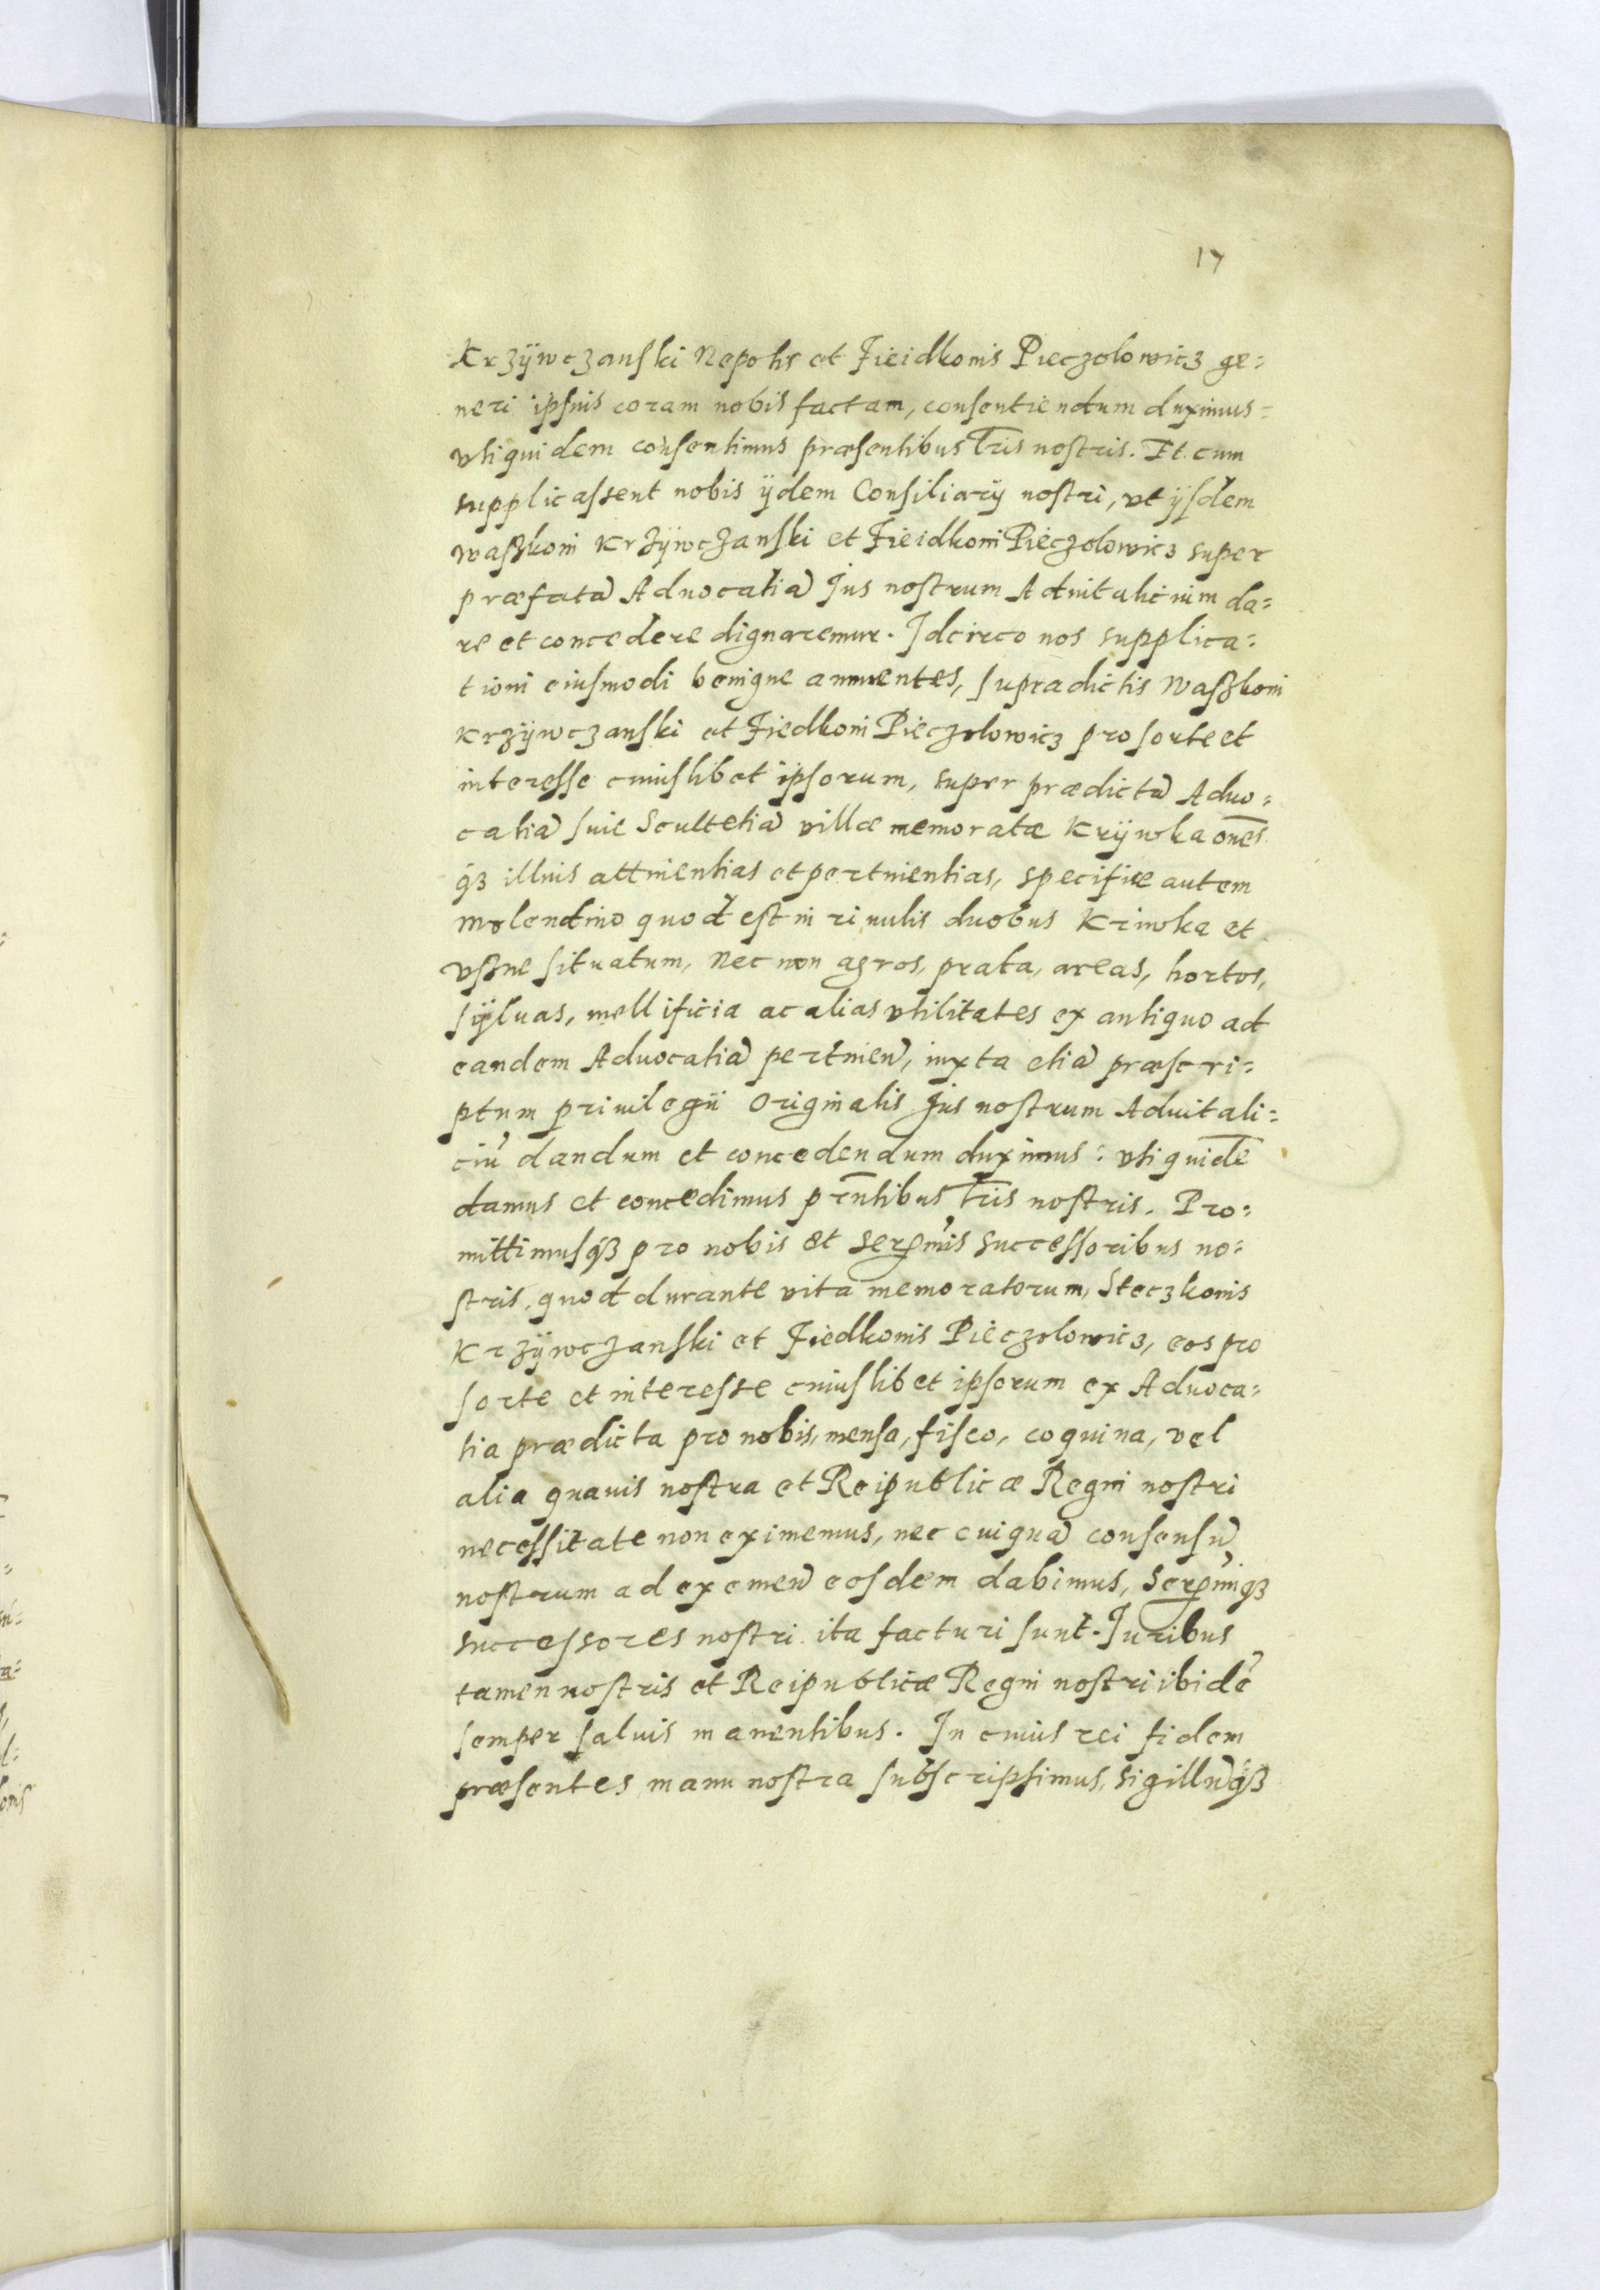 17
Krzÿwczanski Nepotis et Fieidkonis Pieczolowicz ge=
neri ipsius coram nobis factam, consentiendum duximus=
vti quidem consentimus præsentibus Lr̄is nostris. Et cum
supplicassent nobis ÿdem Consiliarÿ nostri, vt ÿsdem
Waszkoni Krzÿwczanski et Fieidkoni Pieczolowicz super
præfatã Aduocatiã Jus nostrum Aduitalicium da=
re et concedere dignaremur. Idcirco nos supplica=
tioni eiusmodi benigne annuentes, supradictis Waszkoni
Krzÿwczanski et Fiedkoni Pieczolowicz pro sorte et
interesse cuiuslibet ipsorum, super prædictã Aduo=
catiã siue Scultetiã villæ memoratæ Krÿwka om̄es
qз illius attinentias et pertinentias, specifice autem
molendino quod est in riuulis duobus Kriwka et
Vszne situatum, Nec non agros, prata, areas, hortos,
sÿluas, mellificia ac alias vtilitates ex antiquo ad
eandem Aduocatiã pertineñ, iuxta etiã præscri=
ptum priuilegii Originalis Jus nostrum Aduitali=
ciũ dandum et concedendum duximus: vti quidē
damus et concedimus pr̄ntibus Lr̄is nostris. Pro=
mittimusqз pro nobis et Serẽnis successoribus no=
stris, quod durante vita memoratorum, Steczkonis
Krzÿwczanski et Fiedkonis Pieczolowicz, eos pro
sorte et interesse cuiuslibet ipsorum ex Aduoca=
tia prædicta pro nobis, mensa, fisco, coquina, vel
alia quauis nostra et Reipublicæ Regni nostri
necessitate non eximemus, nec cuiquã consensũ
nostrum ad eximeñ eosdem dabimus, Serẽniqз
successores nostri ita facturi sunt. Juribus
tamen nostris et Reipublicæ Regni nostri ibidẽ
semper saluis manentibus. In cuius rei fidem
præsentes manu nostra subscripsimus, sigillũqз